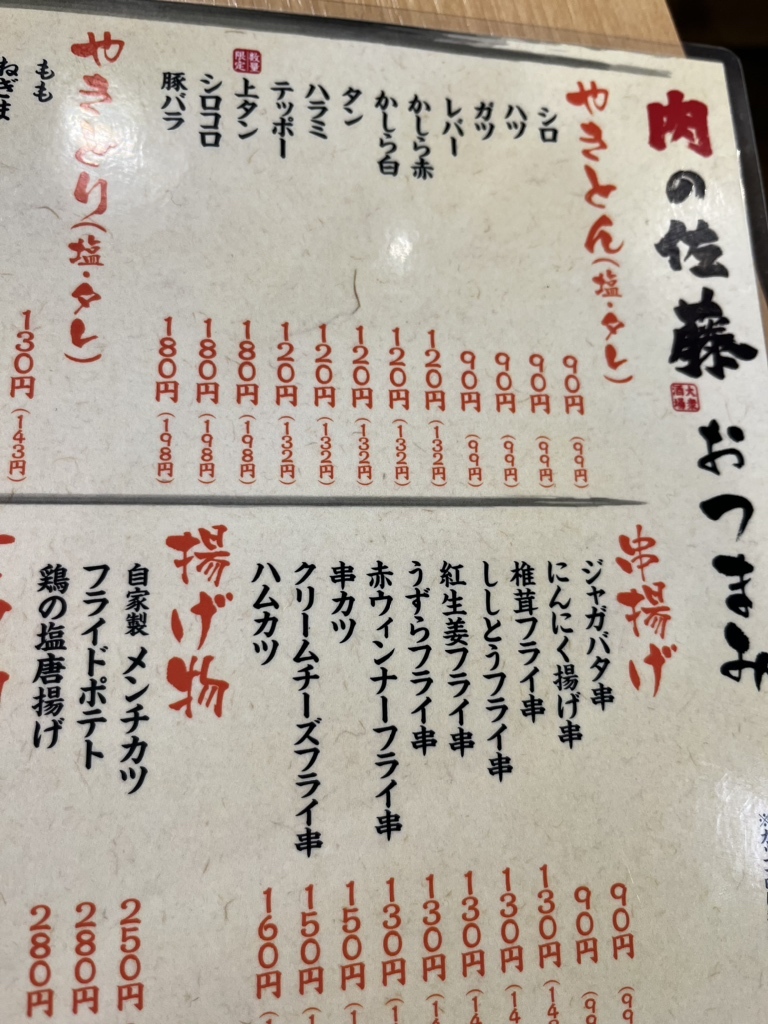 肉の佐藤 大衆酒場 おつまみ
やきとん(塩・タレ)
シロ 90円(99円)
ハツ 90円(99円)
ガツ 90円(99円)
レバー 90円(99円)
かしら赤 120円(132円)
かしら白 120円(132円)
タン 120円(132円)
ハラミ 120円(132円)
テッポー 120円(132円)
数量限定 上タン 180円(198円)
シロコロ 180円(198円)
豚バラ 180円(198円)
やきとり(塩・タレ)
もも 130円(143円)
ねぎま
串揚げ
ジャガバタ串 90円
にんにく揚げ串 90円
椎茸フライ串 130円
ししとうフライ串 130円
紅生姜フライ串 130円
うずらフライ串 130円
赤ウィンナーフライ串 130円
串カツ 150円
クリームチーズフライ串 150円
ハムカツ 160円
揚げ物
自家製 メンチカツ 250円
フライドポテト 280円
鶏の塩唐揚げ 280円